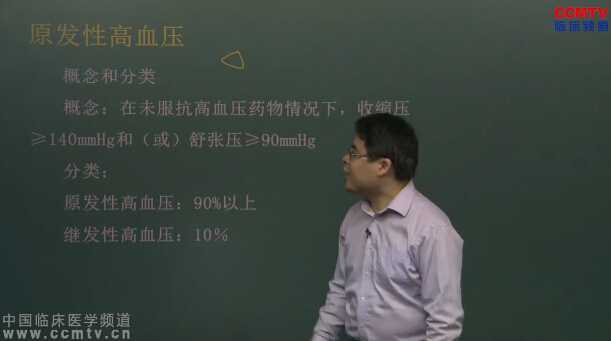 CCMTV
临床频道
原发性高血压
概念和分类
概念：在未服抗高血压药物情况下，收缩压
≥140mmHg和（或）舒张压≥90mmHg
分类：
原发性高血压：90%以上
继发性高血压：10%
中国临床医学频道
www.ccmtv.cn